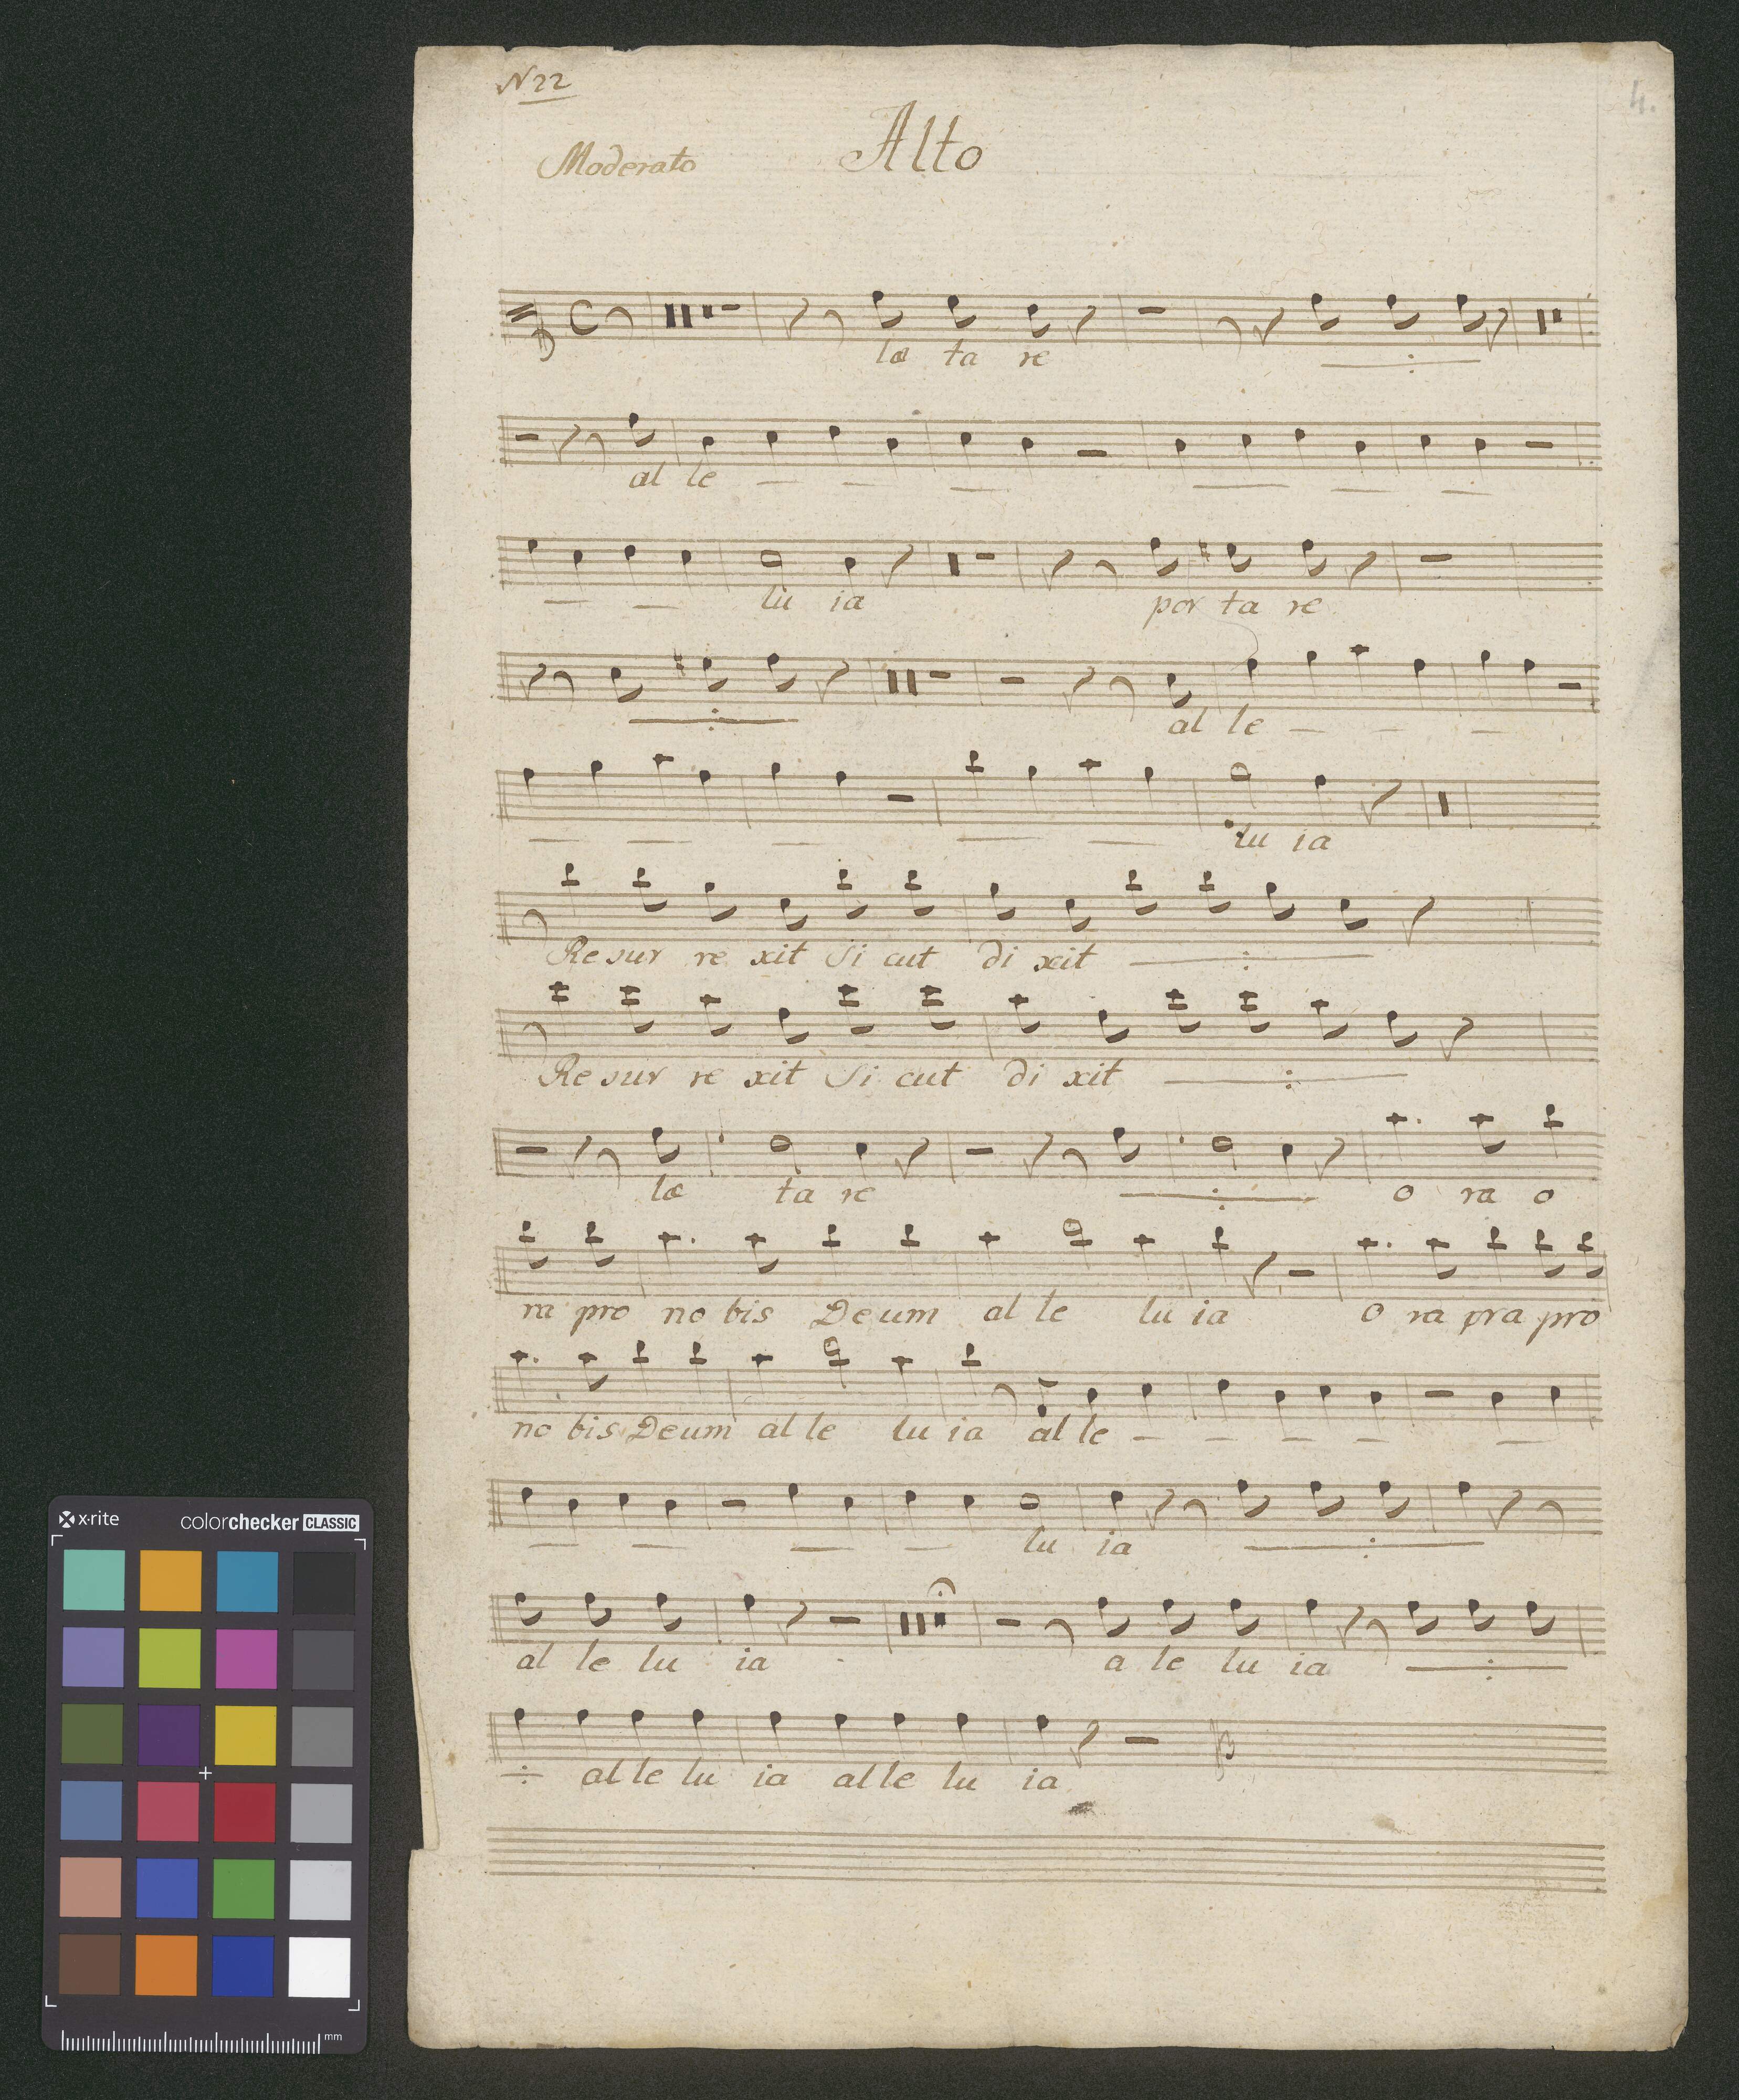 N 22
4.
Moderato Alto
læ ta re
al le
lu ia por ta re
al le
lu ia
Re sur re xit Si cut di xit
Re sur re xit Si cut di xit
læ ta re o ra o
ra pro no bis Deum al le lu ia o ra pra pro
no bis Deum al le lu ia al le
lu ia
al le lu ia a le lu ia
al le lu ia al le lu ia
x-rite colorchecker CLASSIC
mm